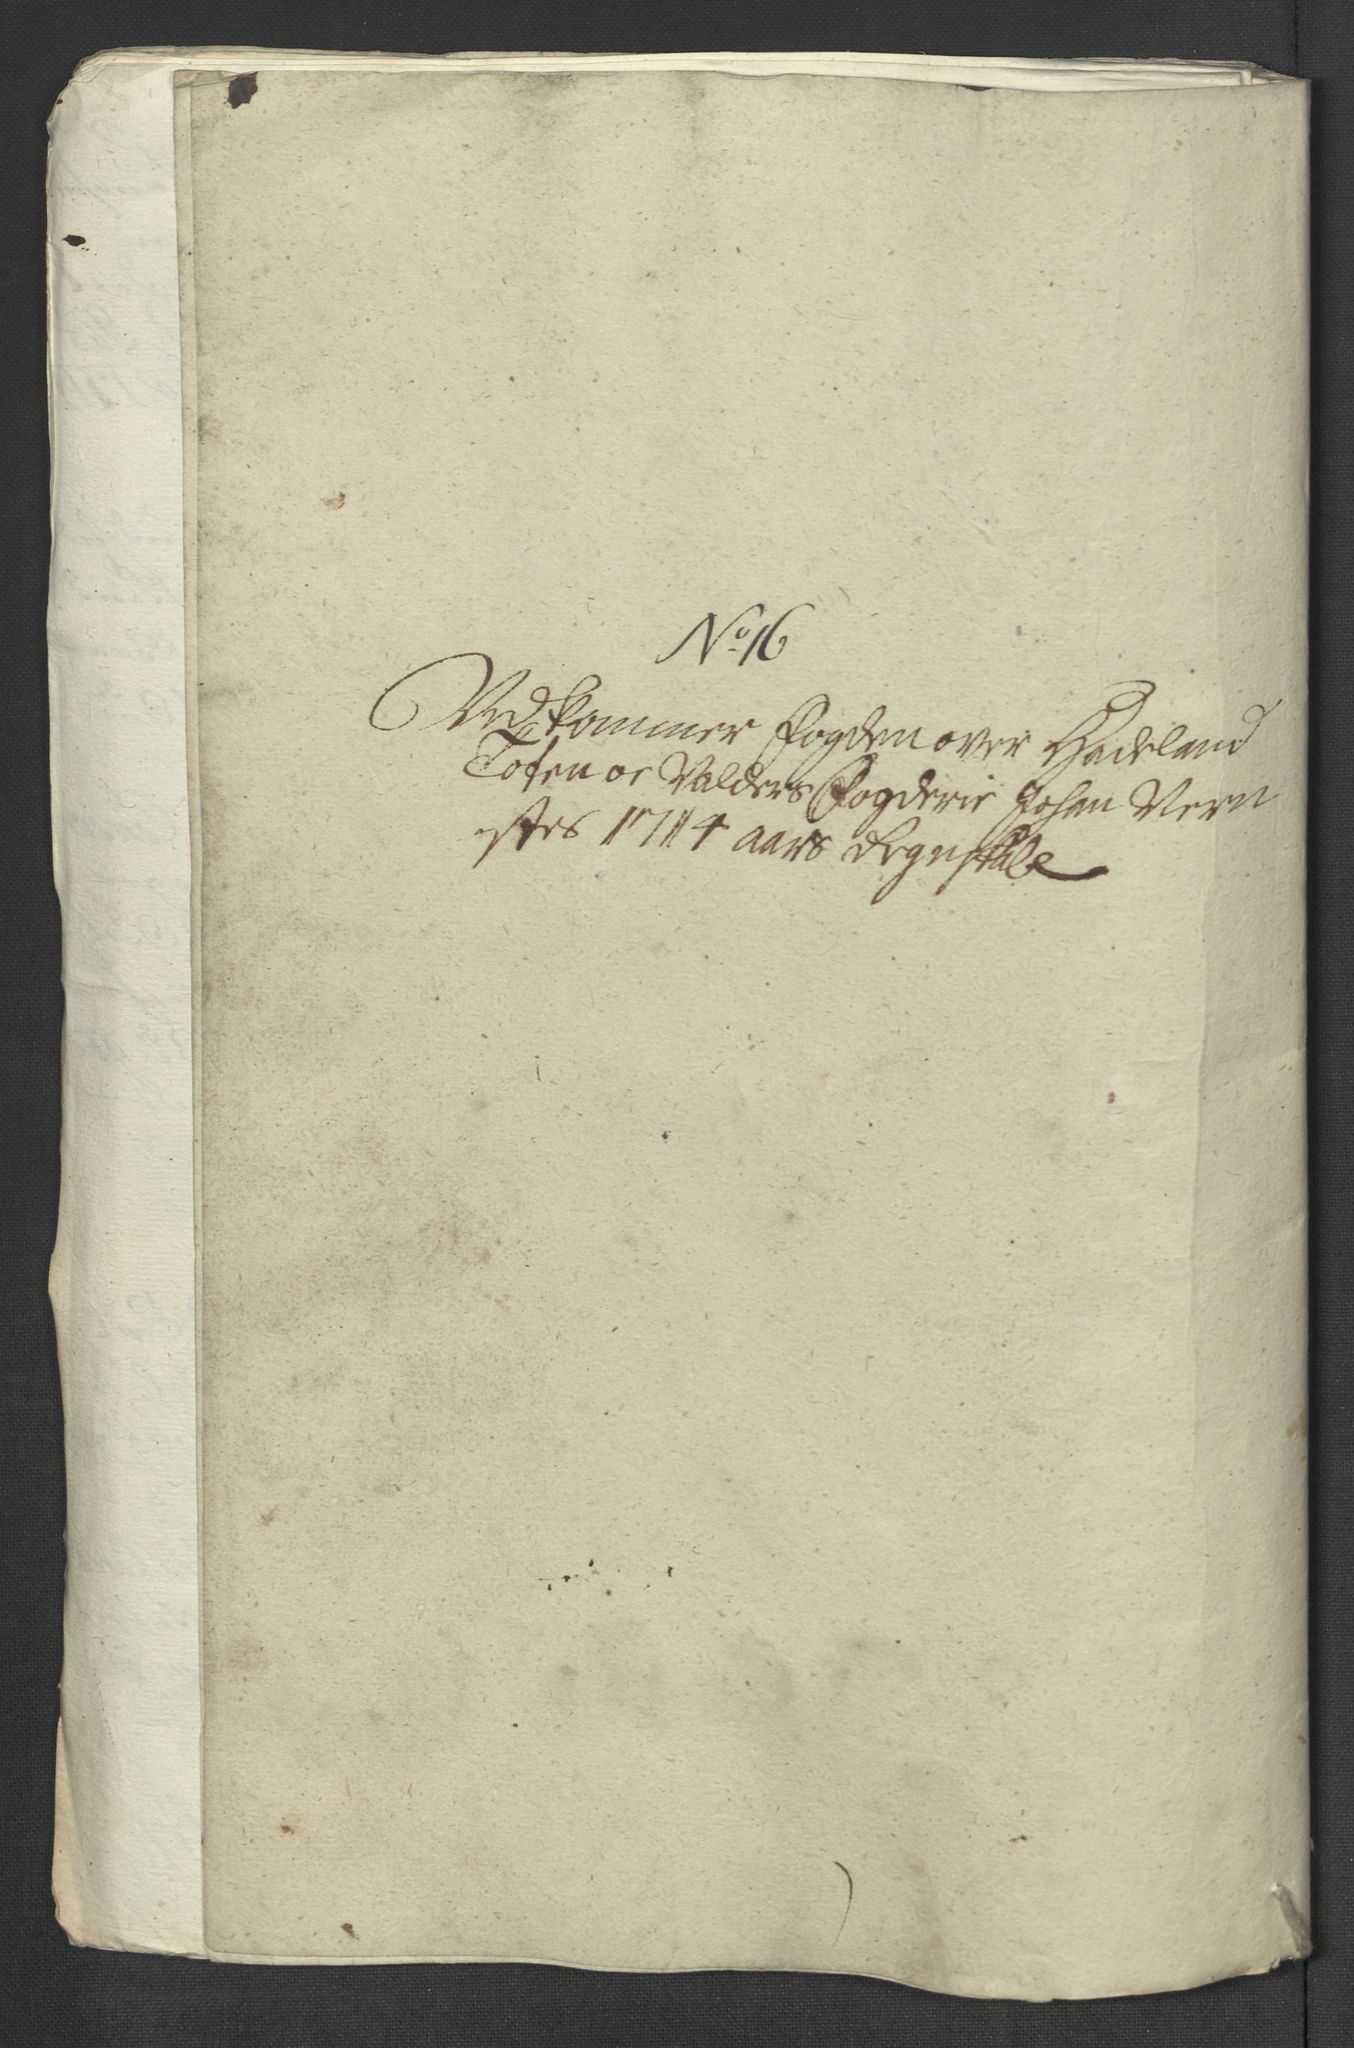 No 16
Vedkommer fogden over Hadeland
Toten oc Valders fogderie Johan Nern
stes 1714 aars Regnskabe